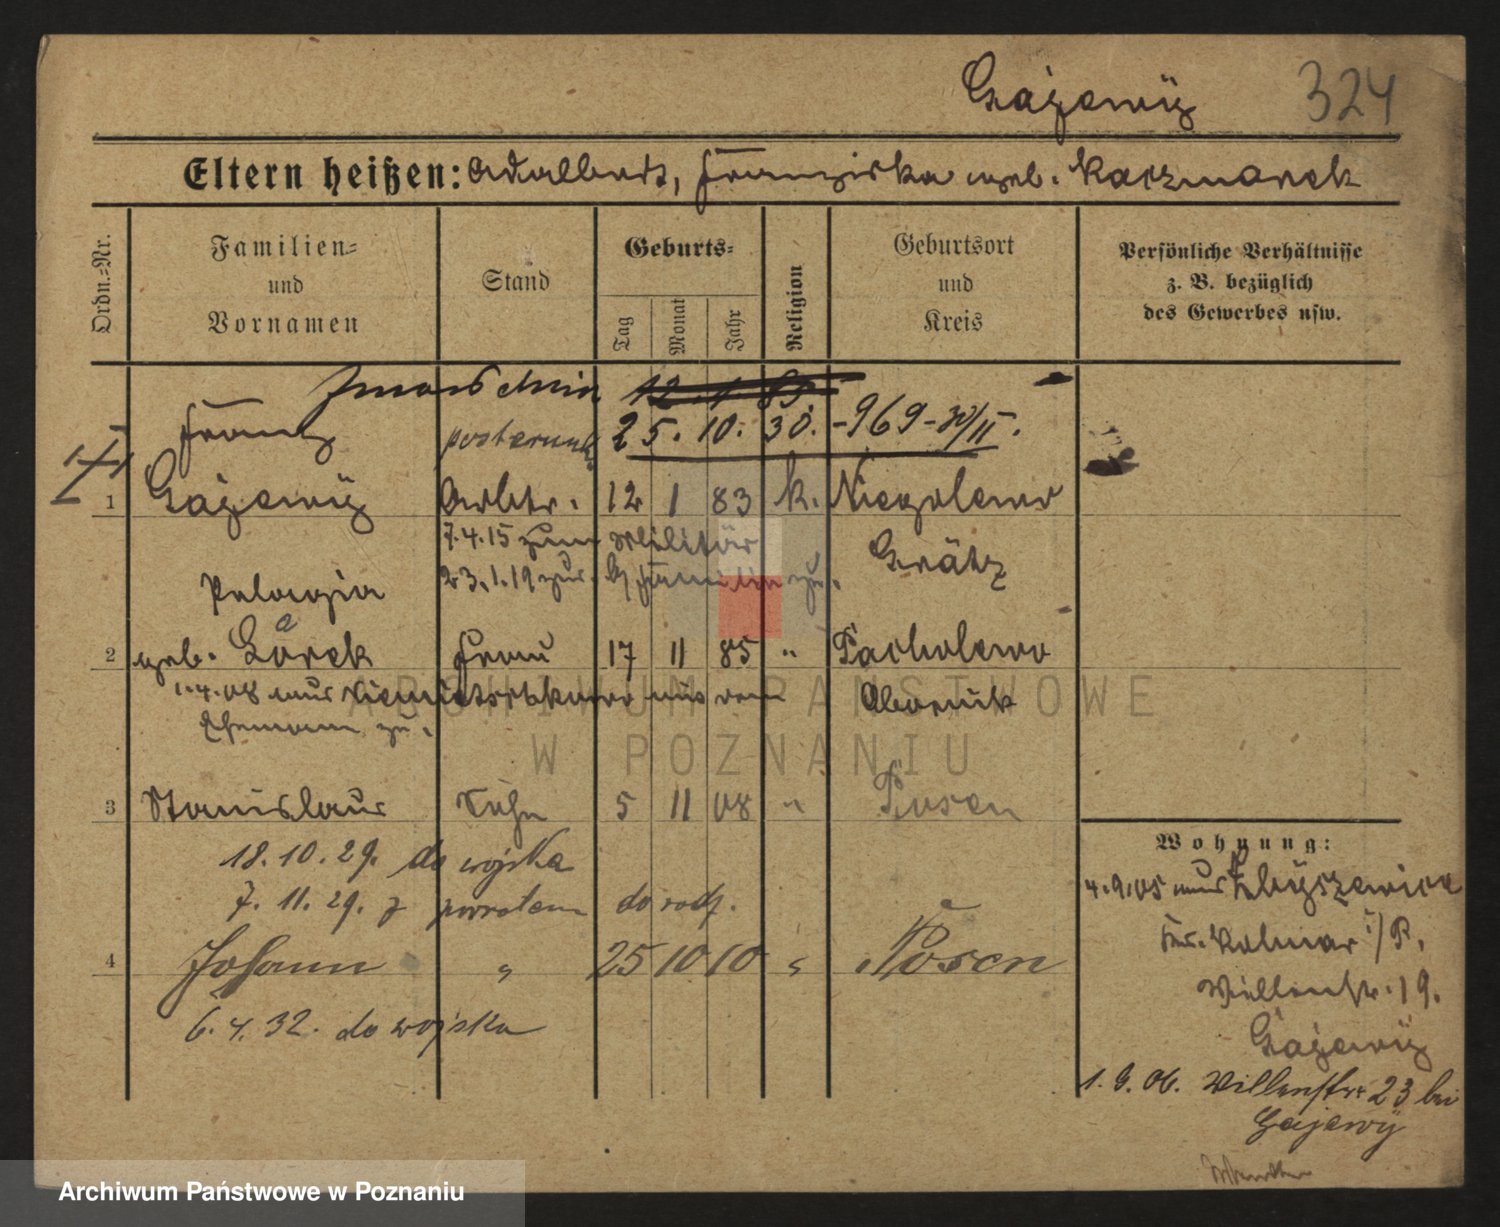 Gajewÿ 324
Eltern heißen: Adalbert, Franziska geb. Kaczmarek
Ordn.-Nr.
Familien-
und
Vornamen
Stand
Geburts-
Tag
Monat
Jahr
Religion
Geburtsort
und
Kreis
Persönliche Verhältnisse
z. B. bezüglich
des Gewerbes usw.
12. 1. 83.
Franz 25. 10. 30. -969-30/II.
1 Gajewÿ Arbtr. 12 1 83 k. Niegolewo
7.4.15 zum Militär
Grätz
23.1.19 zur
Pelagia
2 geb. Górek Frau 17 11 85 "
1.4.08 aus
Obornik
Ehemann zu.
3 Stanislaus Sohn 5 11 08 " Posen
18. 10. 29. do wojska
7. 11. 29. z powrotem do rodz.
4 Johann " 25 10 10 " Posen
6. 4. 32. do wojska
Wohnung:
4.9.05 aus
Kr. Kolmar i/P,
19.
Gajewÿ
1. 9. 06. 23 bei
Gajewy
ARCHIWUM PAŃSTWOWE
W POZNANIU
Archiwum Państwowe w Poznaniu